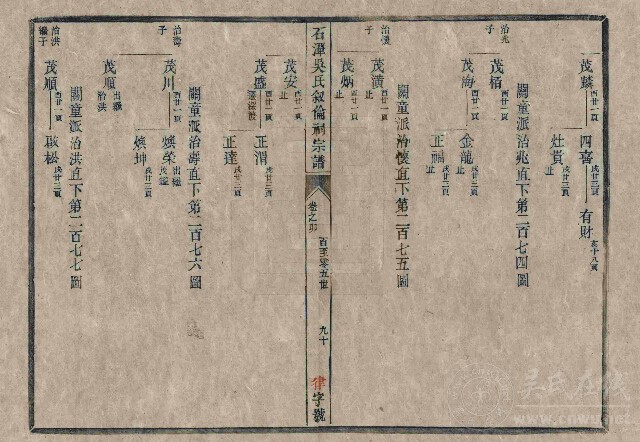 茂麟 酉廿一頁
四喜 戌廿三頁
有財 亥十八頁
灶貴 戌廿三頁 止
關童派治兆直下第二百七四圖
治兆子
茂栢 酉廿一頁 止
茂梅 酉廿一頁
金龍 戌廿三頁 止
正福 戌廿三頁 止
關童派治懷直下第二百七五圖
治懷子
茂濆 酉廿一頁 止
茂炳 酉廿一頁 止
石潭吳氏敘倫祠宗譜
卷之
百至零五世
九十
律字號
茂安 酉廿一頁 止
茂盛 酉廿一頁
正渭 戌廿三頁
正達 戌廿三頁
關童派治壽直下第二百七六圖
治壽子
茂川 酉廿一頁
煥榮 出繼
煥坤 戌廿三頁
茂順 出繼治洪
關童派治洪直下第二百七七圖
治洪繼子
茂順 酉廿一頁
啟松 戌廿三頁
吳氏在线
www.cnwu.net